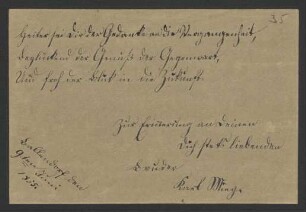 35
Heiter sei dir der Gedanke an die Vergangenheit,
Beglückend der Genuß der Gegenwart,
Und froh der Blick in die Zukunft.
Zur Erinerung an Deinen
Dich stets liebenden
Bruder
Karl
den
9ten Juni
1855.